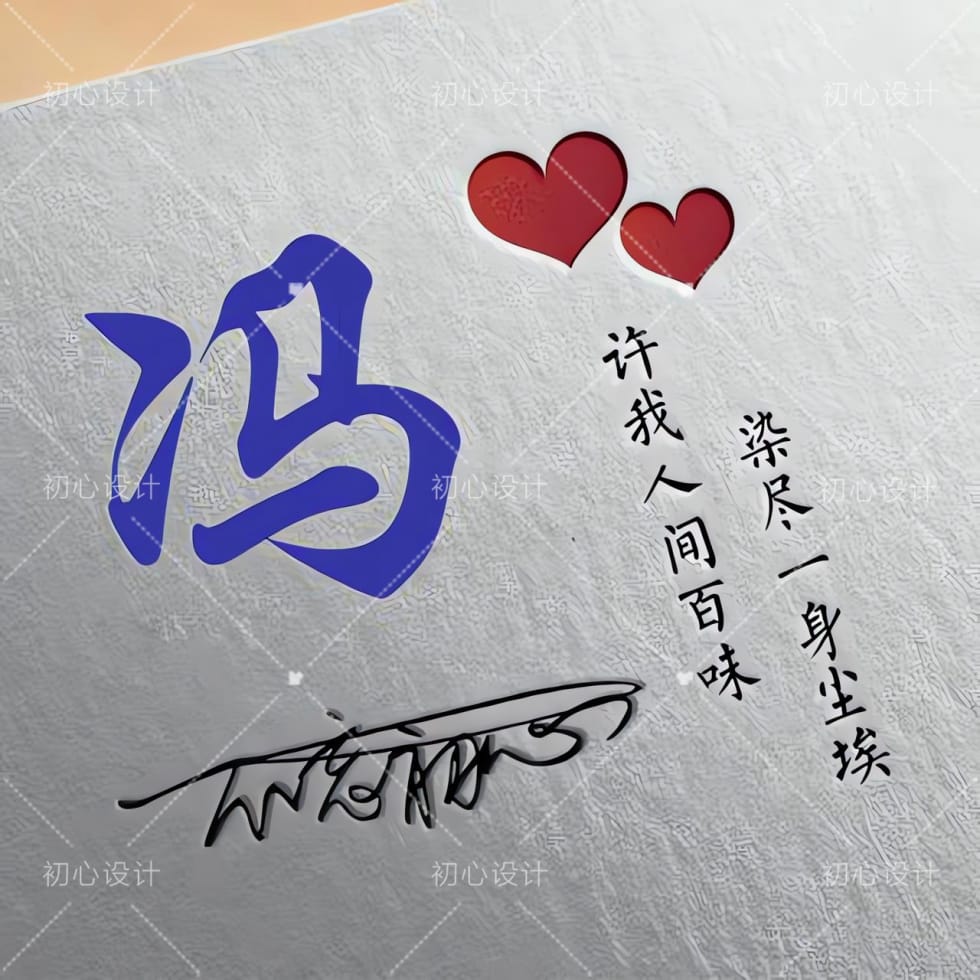 初心设计 初心设计 初心设计
冯
许我人间百味
染尽一身尘埃
初心设计 初心设计 初心设计
初心设计 初心设计 初心设计